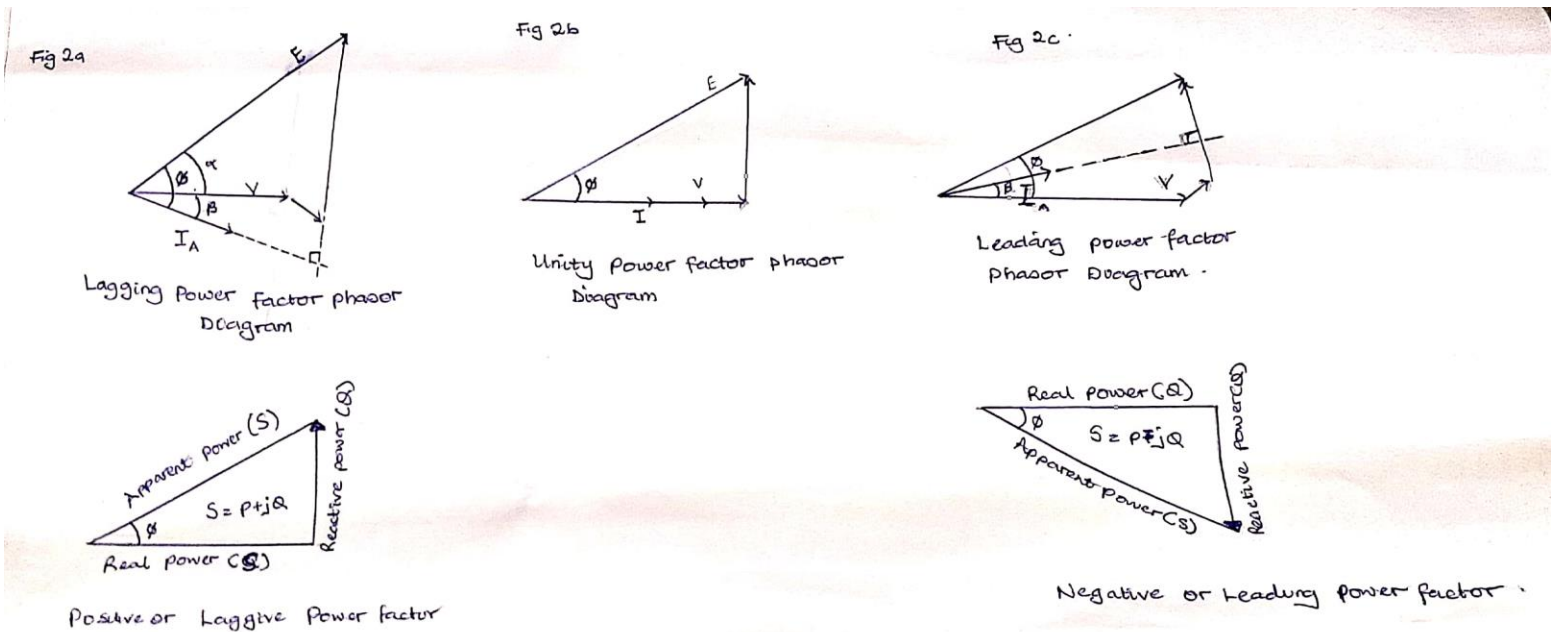 Fig 2a
E
α
ø
V
β
I_A
Lagging Power factor phasor
Diagram
Fig 2b
E
ø
V
I
Unity Power factor phasor
Diagram
Fig 2c.
ø
β
I_A
V
Leading power factor
phasor Diagram.
Apparent power (S)
S = P+jQ
ø
Reactive power (Q)
Real power (Q)
Positive or Laggive Power factor
Real power (Q)
ø
S = P-jQ
Apparent power (S)
Reactive power (Q)
Negative or Leading power factor.